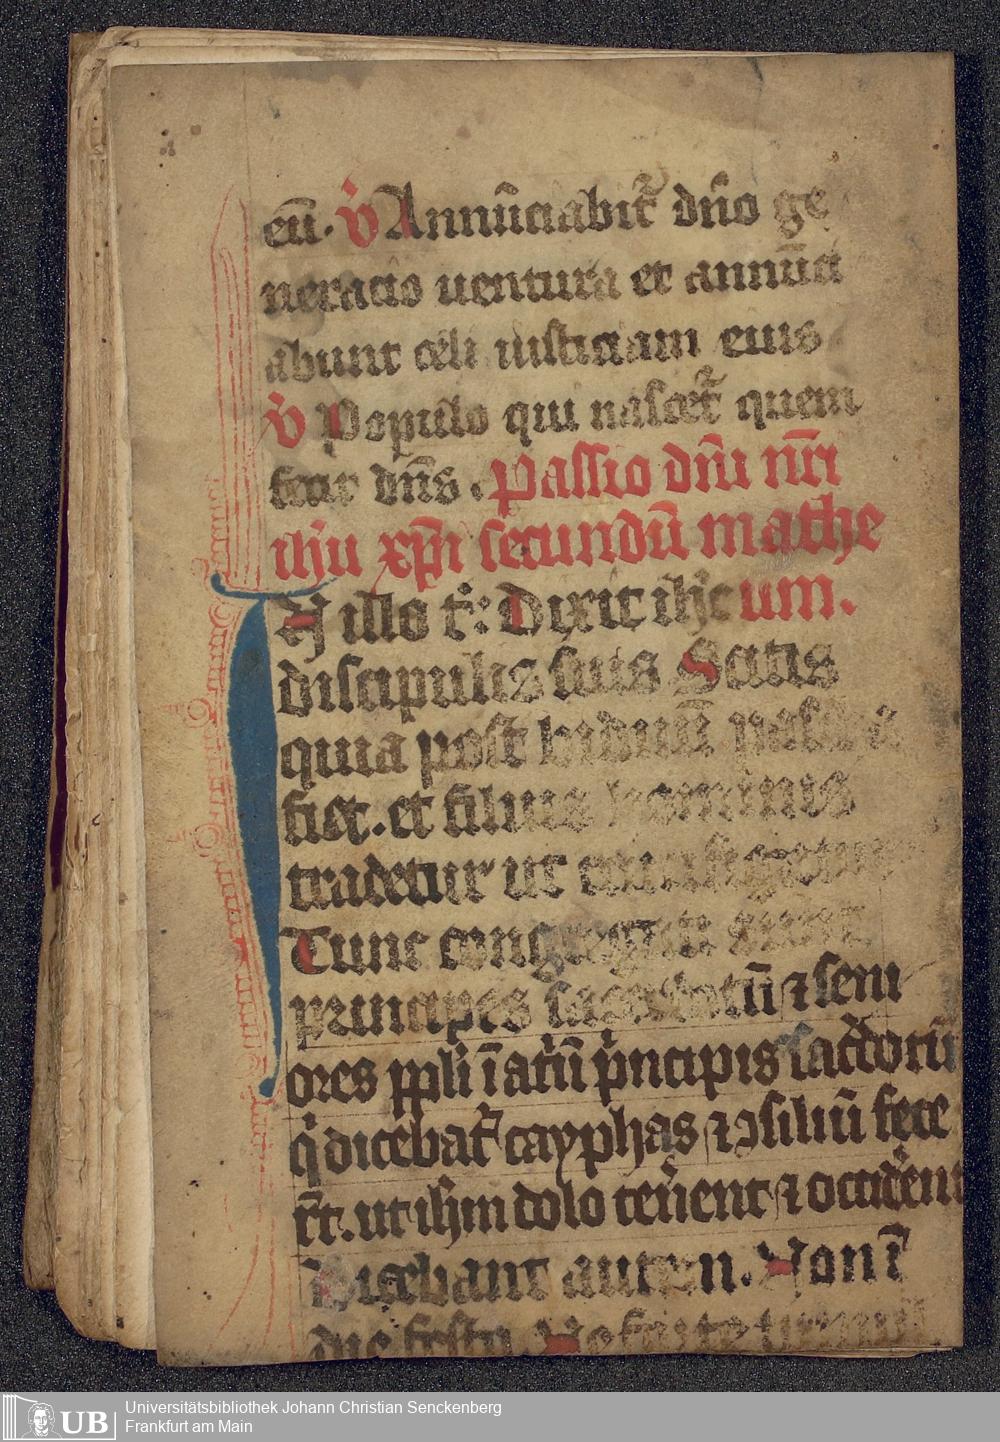 eū. v̇ Annūciabit᷑ dn̄o ge
neracio uentura et annūci
abunt celi iusticiam eius
v̇ Populo qui nascet᷑ quem
fecit dn̄s. Passio dn̄i nr̄i
ih̄u xp̄i secundū mathe
In illo t̄: Dixit ih̄c um.
discipulis suis Scitis
quia post biduū pascha
fiet. et filius hominis
tradetur ut crucifigetur
Tunc congregati sunt
principes sacerdotū ⁊ seni
ores ppl̄i ī atriū pͥncipis sacͨdotū
qͥ dicebat᷑ cayphas ⁊ ↄsiliū fece
rt̄. ut ih̄m dolo tenͤent ⁊ occidͤent
Dicebant autem. Non ī
die festo Ne forte tumul
Universitätsbibliothek Johann Christian Senckenberg
Frankfurt am Main
UB